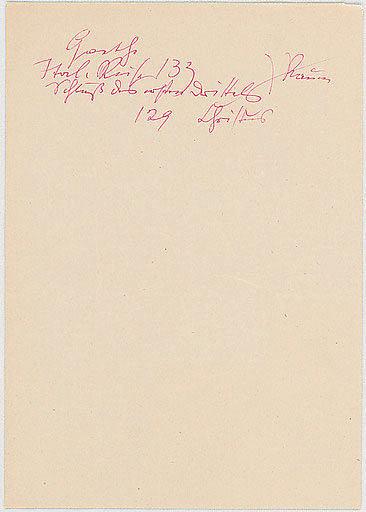 Goethe
Ital. Reise 133
Schluß des ersten Drittels
129 Christus